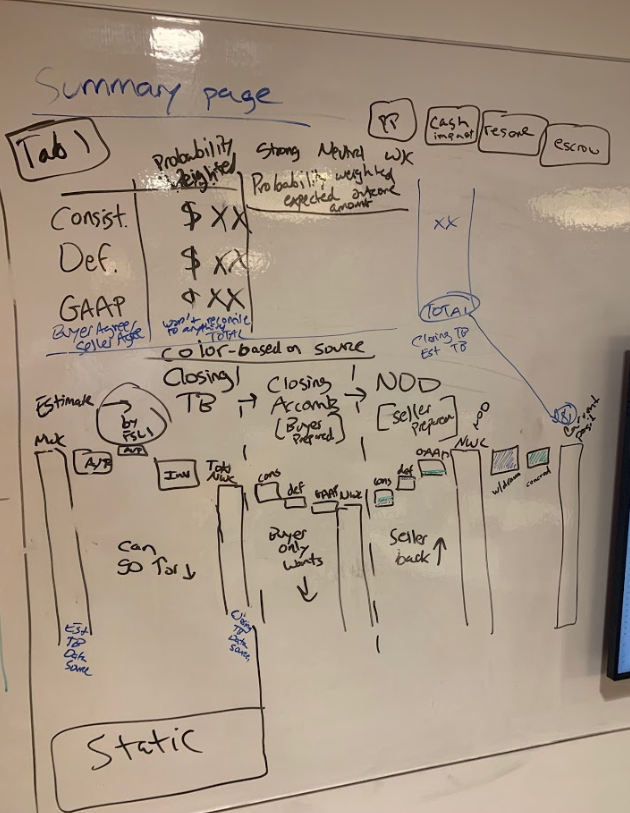 Summary page
Tab 1
PP
cash impact
resolve
escrow
Probability Weighted
Strong Neutral WK
Probability weighted
expected outcome
amount
Consist. $ XX
Def. $ XX
GAAP $ XX
XX
Buyer Agree/
Seller Agree
won't reconcile
to anything
TOTAL
TOTAL
Closing TB
Est TB
color-based on source
Estimate →
by
FSLI
Closing
TB
→
Closing
Accounts
[Buyer
Prepared]
→
NOD
[Seller
Preparer]
NWC
A/R
A/P
Inv
Total
NWC
cons
def
GAAP
NWC
cons
def
GAAP
NWC
NOD
w/drawn
concered
XX
Current
posit
can
go ↑or↓
Buyer
only
wants
↓
Seller
back ↑
Est
TB
Data
Source
Closing
TB
Data
Source
Static